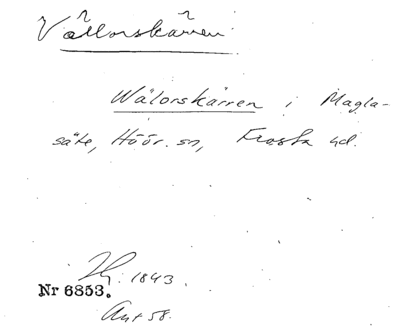 Vållorskärren
Wälorskärren i Magla-
säte, Höör. sn, Frosta hd.
Hy. 1843.
Nr 6853.
Avt 58.